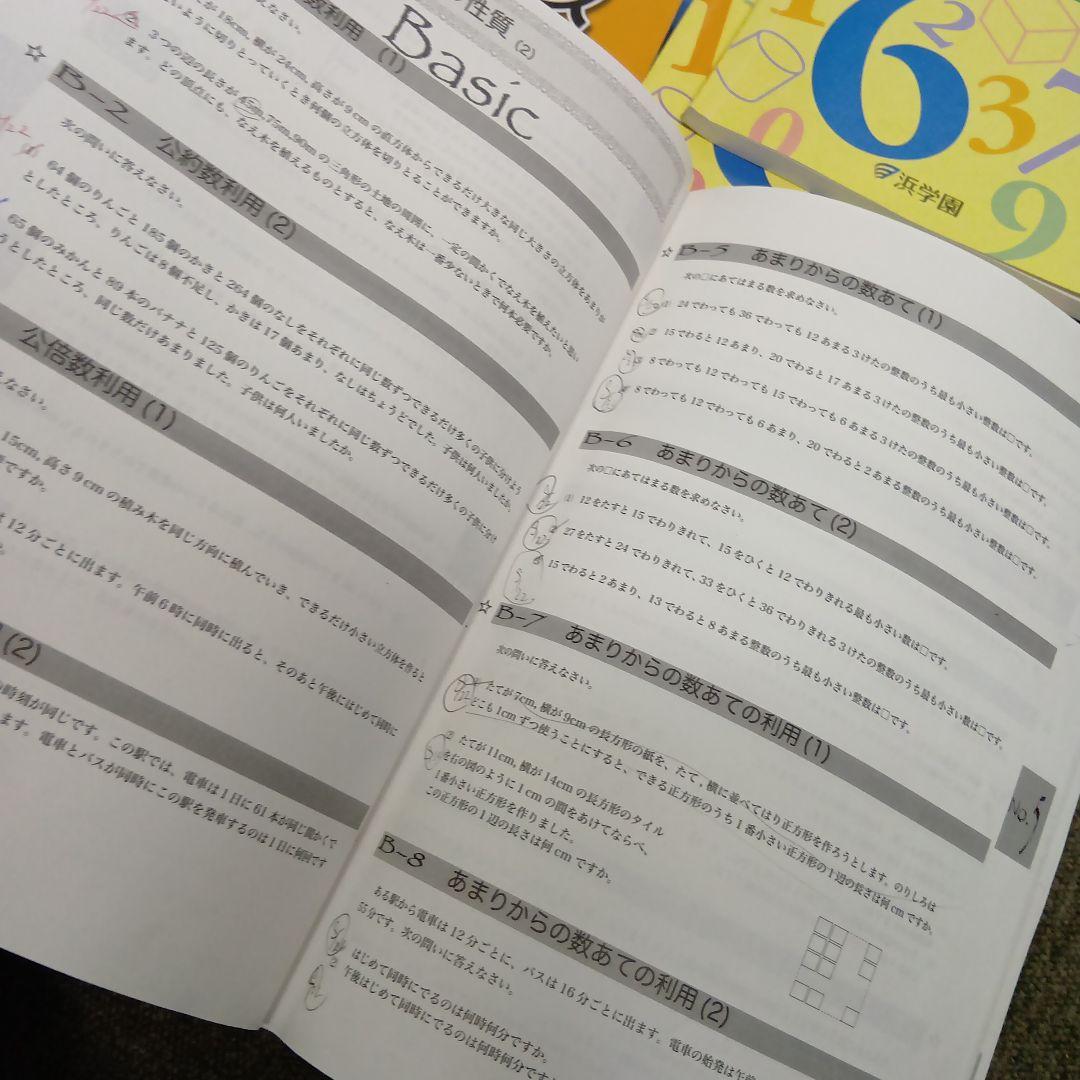 性質 (2)
Basic
数利用 (1)
が18cm, 横が24cm, 高さが9cmの直方体からできるだけ大きな同じ大きさの立方体をあまりが
ないように切りとっていくとき何個の立方体を切りとることができますか。
☆
3つの辺の長さが
75m, 90mの三角形の土地の周囲に、一定の間かくでなえ木を植えたいと思い
ます。どの頂点にも、なえ木を植えるものとすると、なえ木は一番少ないときで何本必要ですか。
B-2 公約数利用 (2)
次の問いに答えなさい。
64個のりんごと185個のかきと264個のなしをそれぞれに同じ数ずつできるだけ多くの子供に分けよう
としたところ、りんごは8個不足し、かきは17個あまり、なしはちょうどでした。子供は何人いましたか。
65個のみかんと89本のバナナと125個のりんごをそれぞれに同じ数ずつできるだけ多くの子供に分け
ようとしたところ、同じ数だけあまりました。子供は何人いましたか。
公倍数利用 (1)
えなさい。
15cm, 高さ9cmの積み木を同じ方向に積んでいき、できるだけ小さい立方体を作ると
ですか。
は12分ごとに出ます。午前6時に同時に出ると、そのあと午後にはじめて同時に
(2)
時刻が同じです。この駅では、電車は1日に61本が同じ間かくで
ます。電車とバスが同時にこの駅を発車するのは1日に何回です
☆
B-5 あまりからの数あて (1)
次の□にあてはまる数を求めなさい。
24でわっても36でわっても12あまる3けたの整数のうち最も小さい整数は□です。
② 15でわると12あまり、20でわると17あまる3けたの整数のうち最も小さい整数は□です。
8でわっても12でわっても15でわっても6あまる3けたの整数のうち最も小さい整数は□です。
8でわっても12でわっても6あまり、20でわると2あまる整数のうち最も小さい整数は□です。
B-6 あまりからの数あて (2)
次の□にあてはまる数を求めなさい。
(1) 12をたすと15でわりきれて、15をひくと12でわりきれる最も小さい数は□です。
27をたすと24でわりきれて、33をひくと36でわりきれる3けたの整数のうち最も小さい数は□です。
15でわると2あまり、13でわると8あまる整数のうち最も小さい整数は□です。
☆
B-7 あまりからの数あての利用 (1)
次の問いに答えなさい。
たてが7cm, 横が9cmの長方形の紙を、たて, 横に並べてはり正方形を作ろうとします。のりしろは
どこも1cmずつ使うことにすると、できる正方形のうち1番小さい正方形の1辺の長さは何cmですか。
② たてが11cm, 横が14cmの長方形のタイル
を右の図のように1cmの間をあけてならべ、
1番小さい正方形を作りました。
この正方形の1辺の長さは何cmですか。
B-8 あまりからの数あての利用 (2)
ある駅から電車は12分ごとに、バスは16分ごとに出ます。電車の始発は午前
55分です。次の問いに答えなさい。
はじめて同時にでるのは何時何分ですか。
午後はじめて同時にでるのは何時何分ですか
No. 5
6
3
7
9
浜学園